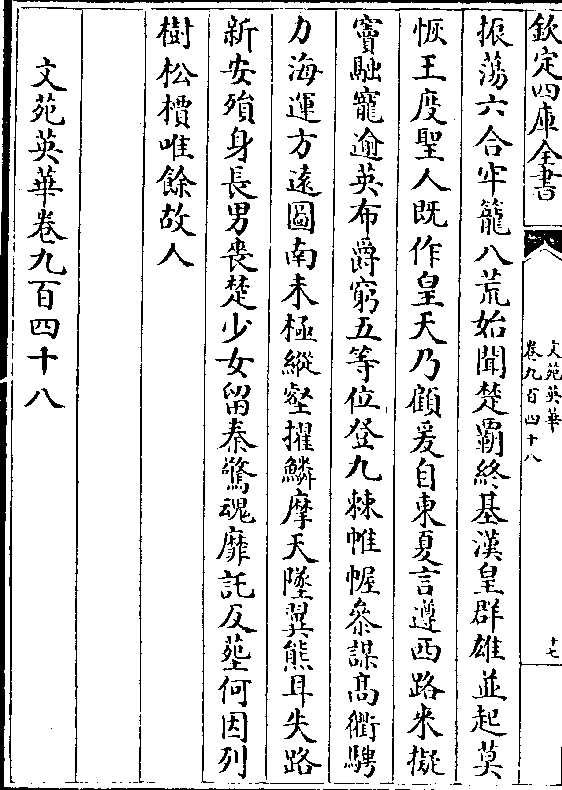 欽定四庫全書
文苑英華
卷九百四十八
十七
振蕩六合牢籠八荒始聞楚霸終基漢皇群雄並起莫
恢王度聖人既作皇天乃顧爰自東夏言遵西路来擬
竇融寵逾英布爵窮五等位登九棘帷幄叅謀髙衢騁
力海運方遠圖南未極縱壑擢鱗摩天墜翼熊耳失路
新安殞身長男喪楚少女留秦驚魂靡託反塟何因列
樹松檟唯餘故人
文苑英華卷九百四十八